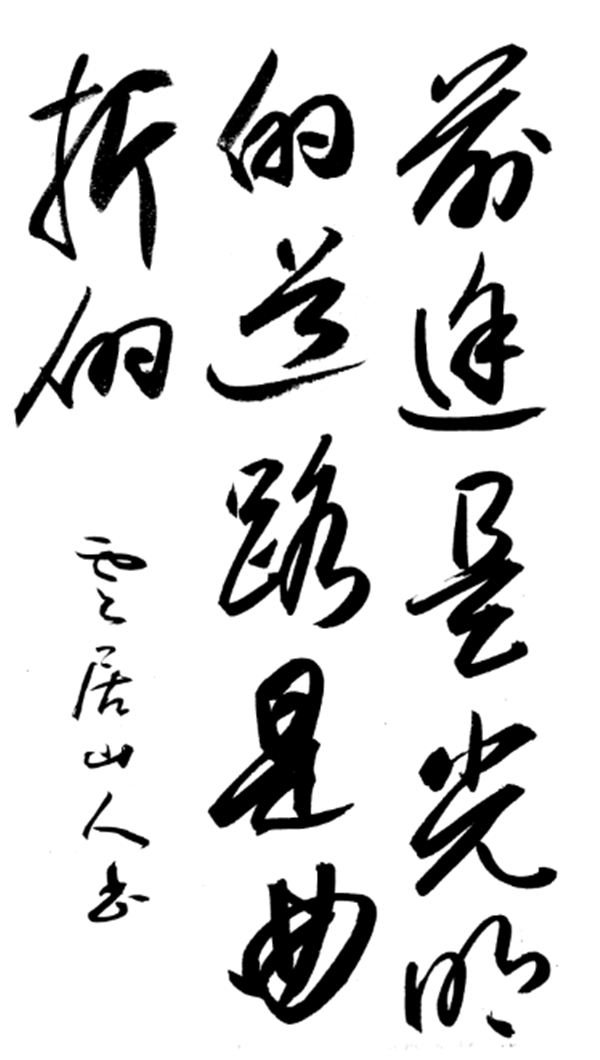 前途是光明
的道路是曲
折的
雲居山人书